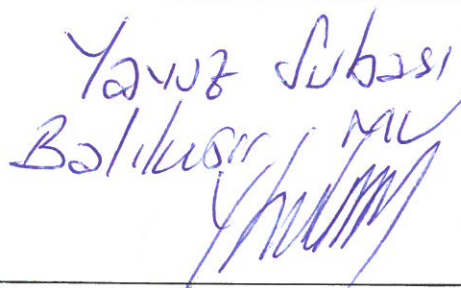 Yavuz Subaşı
Balıkesir MV